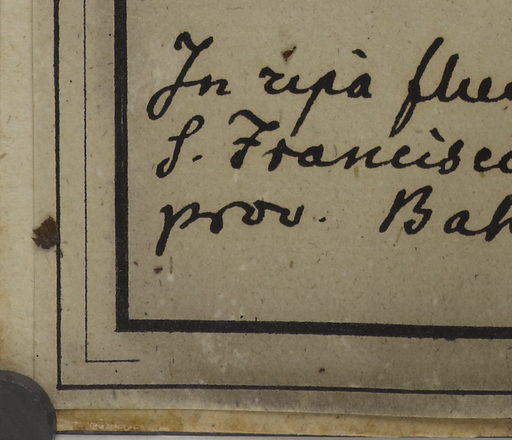 In ripà flu
S. Francisc
prov. Bah